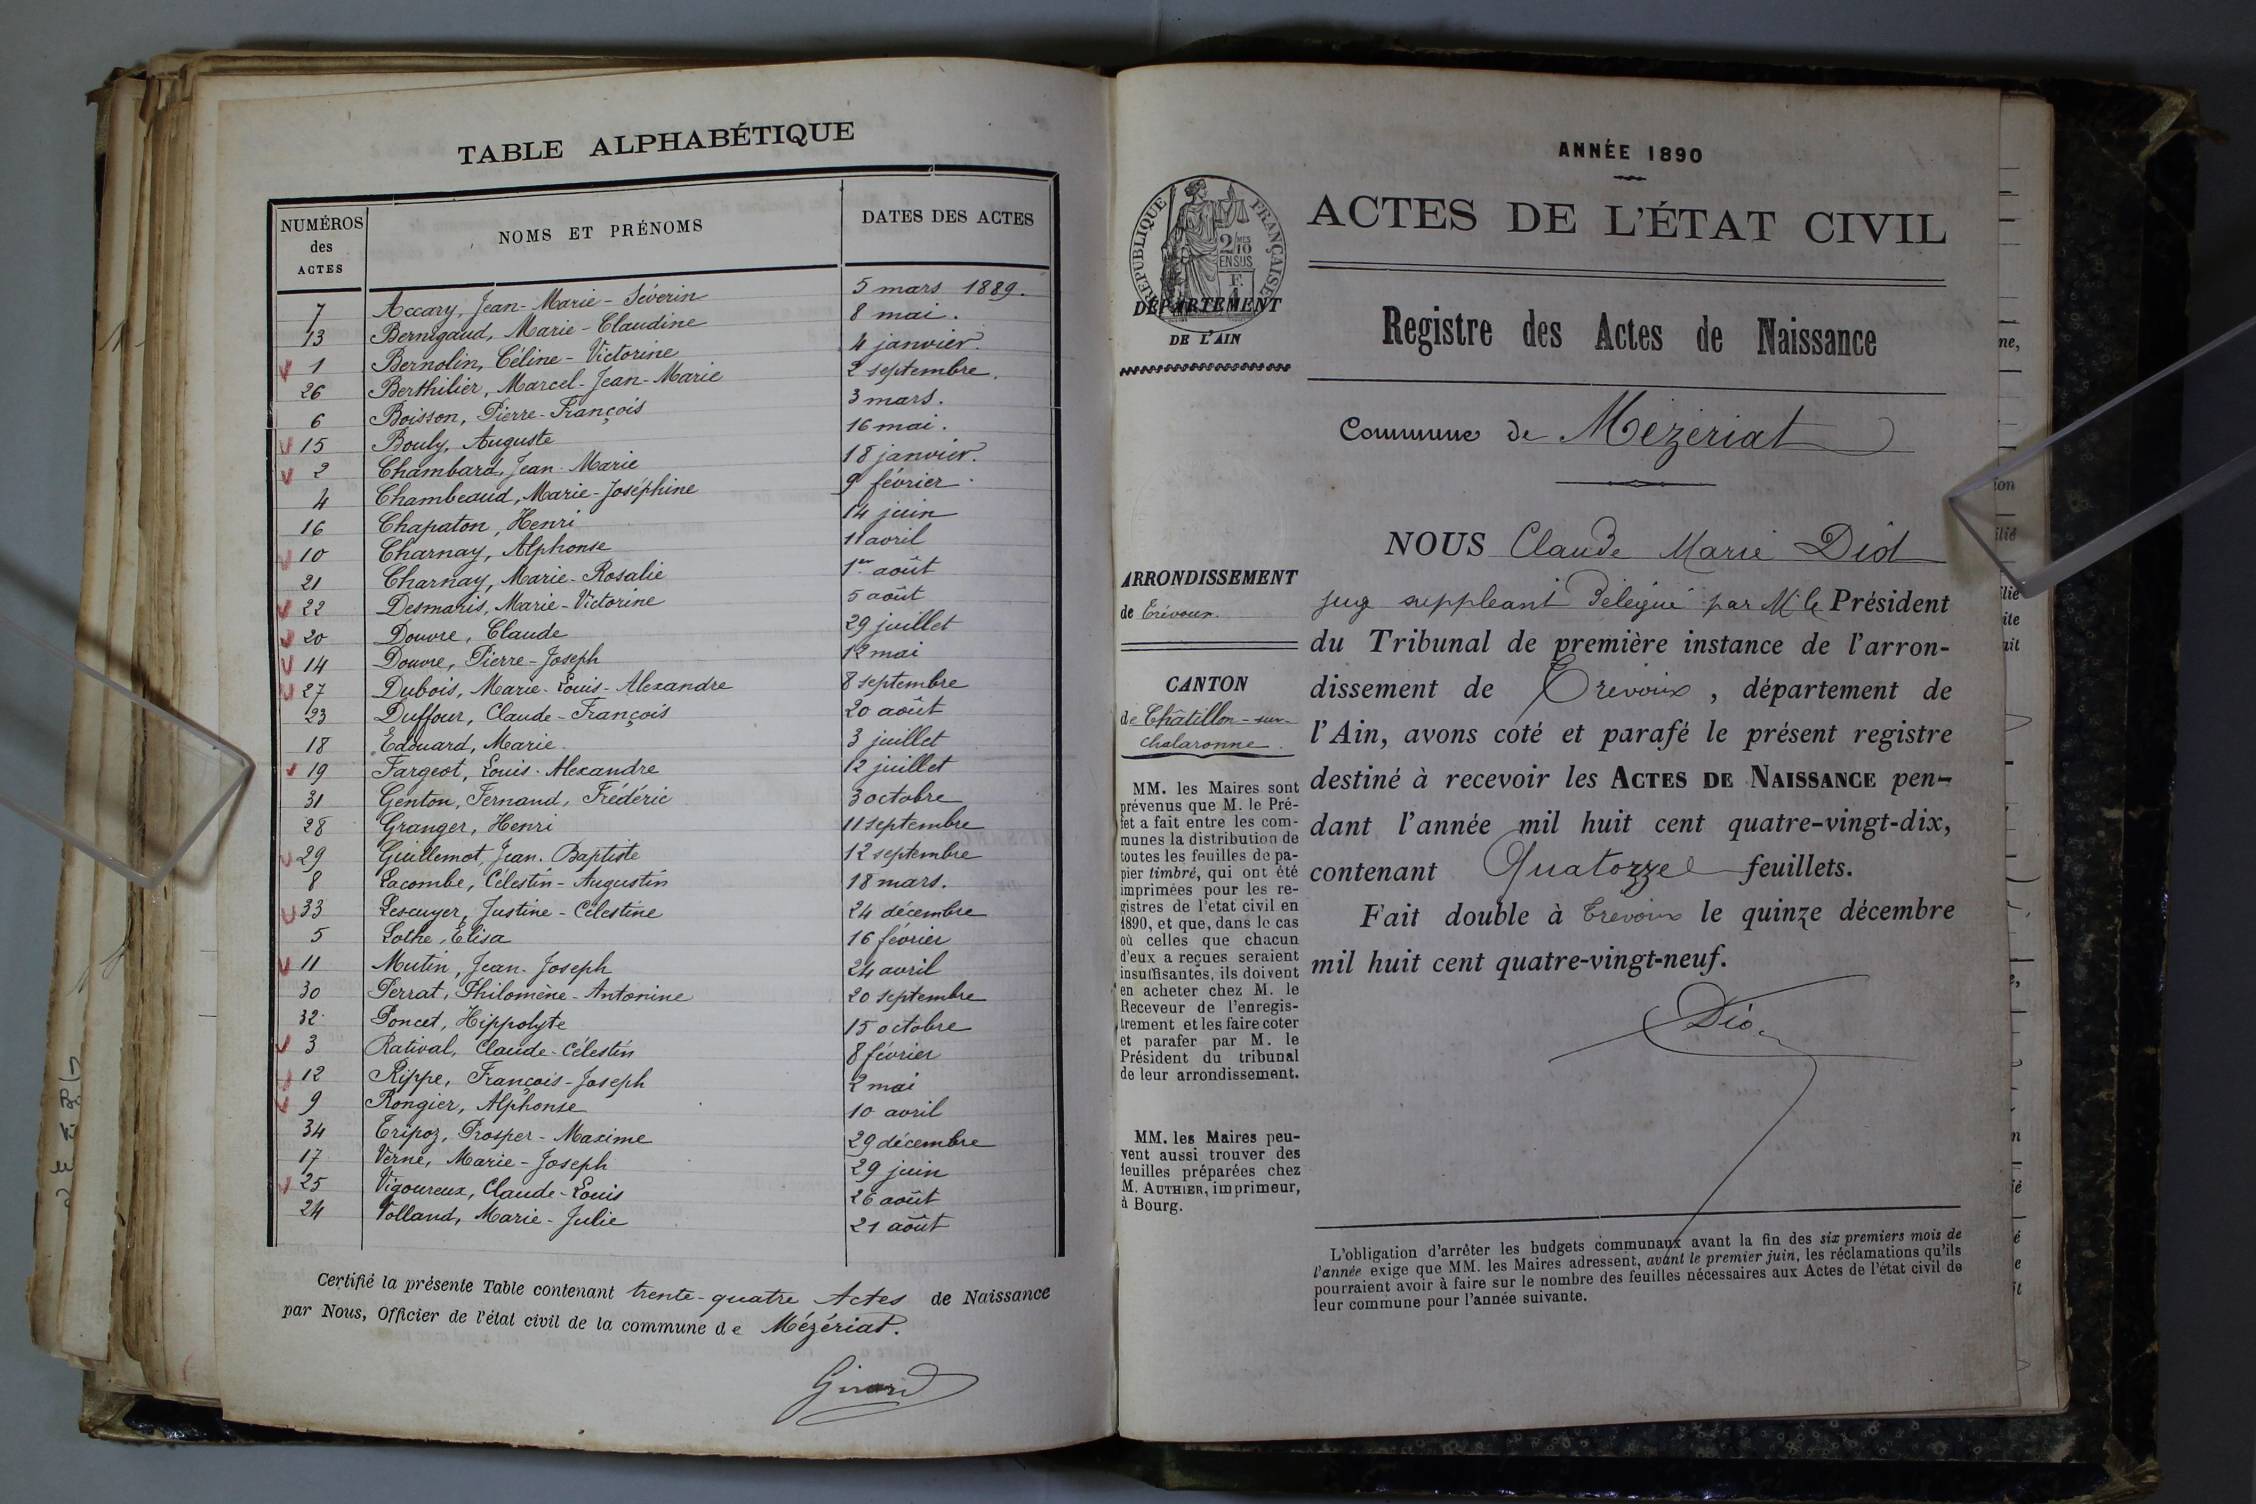 TABLE ALPHABÉTIQUE
NUMÉROS des ACTES
NOMS ET PRÉNOMS
DATES DES ACTES
7 Accary, Jean-Marie-Séverin 5 mars 1889.
13 Bernigaud, Marie-Claudine 8 mai.
1 Bernolin, Céline-Victorine 4 janvier.
26 Berthilier, Marcel-Jean-Marie 2 septembre.
6 Boisson, Pierre-François 3 mars.
15 Bouly, Auguste 16 mai.
2 Chambard, Jean-Marie 18 janvier.
4 Chambeaud, Marie-Joséphine 9 février.
16 Chapaton, Henri 14 juin
10 Charnay, Alphonse 11 avril
21 Charnay, Marie-Rosalie 1er août
22 Desmaris, Marie-Victorine 5 août
20 Douvre, Claude 29 juillet
14 Douvre, Pierre-Joseph 12 mai
27 Dubois, Marie-Louis-Alexandre 8 septembre
23 Duffour, Claude-François 20 août
18 Edouard, Marie. 3 juillet
19 Fargeot, Louis-Alexandre 12 juillet
31 Genton, Fernand, Frédéric 3 octobre
28 Granger, Henri 11 septembre
29 Guillemot, Jean-Baptiste 12 septembre
8 Lacombe, Célestin-Augustin 18 mars.
33 Lescuyer, Justine-Célestine 24 décembre
5 Lothe, Elisa 16 février
11 Mutin, Jean-Joseph 24 avril
30 Perrat, Philomène-Antonine 20 septembre
32 Poncet, Hippolyte 15 octobre
3 Ratival, Claude-Célestin 8 février
12 Rippe, François-Joseph 2 mai
9 Rongier, Alphonse 10 avril
34 Tripoz, Prosper-Maxime 29 décembre
17 Verne, Marie-Joseph 29 juin
25 Vigoureux, Claude-Louis 26 août
24 Volland, Marie-Julie 21 août
Certifié la présente Table contenant trente-quatre Actes de Naissance
par Nous, Officier de l'état civil de la commune de Mézériat.
Girard
ANNÉE 1890
ACTES DE L'ÉTAT CIVIL
RÉPUBLIQUE FRANÇAISE
2/10 MES
EN SUS
DÉPARTEMENT
DE L'AIN
Registre des Actes de Naissance
Commune de Mézériat
ARRONDISSEMENT
de Trévoux.
CANTON
de Châtillon-sur-
Chalaronne.
MM. les Maires sont
prévenus que M. le Pré-
fet a fait entre les com-
munes la distribution de
toutes les feuilles de pa-
pier timbré, qui ont été
imprimées pour les re-
gistres de l'état civil en
1890, et que, dans le cas
où celles que chacun
d'eux a reçues seraient
insuffisantes, ils doivent
en acheter chez M. le
Receveur de l'enregis-
trement et les faire coter
et parafer par M. le
Président du tribunal
de leur arrondissement.
MM. les Maires peu-
vent aussi trouver des
feuilles préparées chez
M. AUTHIER, imprimeur,
à Bourg.
NOUS Claude Marie Diot
juge suppleant Délégué par M. le Président
du Tribunal de première instance de l'arron-
dissement de Trévoux, département de
l'Ain, avons coté et parafé le présent registre
destiné à recevoir les ACTES DE NAISSANCE pen-
dant l'année mil huit cent quatre-vingt-dix,
contenant Quatorze feuillets.
Fait double à Trévoux le quinze décembre
mil huit cent quatre-vingt-neuf.
L'obligation d'arrêter les budgets communaux avant la fin des six premiers mois de
l'année exige que MM. les Maires adressent, avant le premier juin, les réclamations qu'ils
pourraient avoir à faire sur le nombre des feuilles nécessaires aux Actes de l'état civil de
leur commune pour l'année suivante.